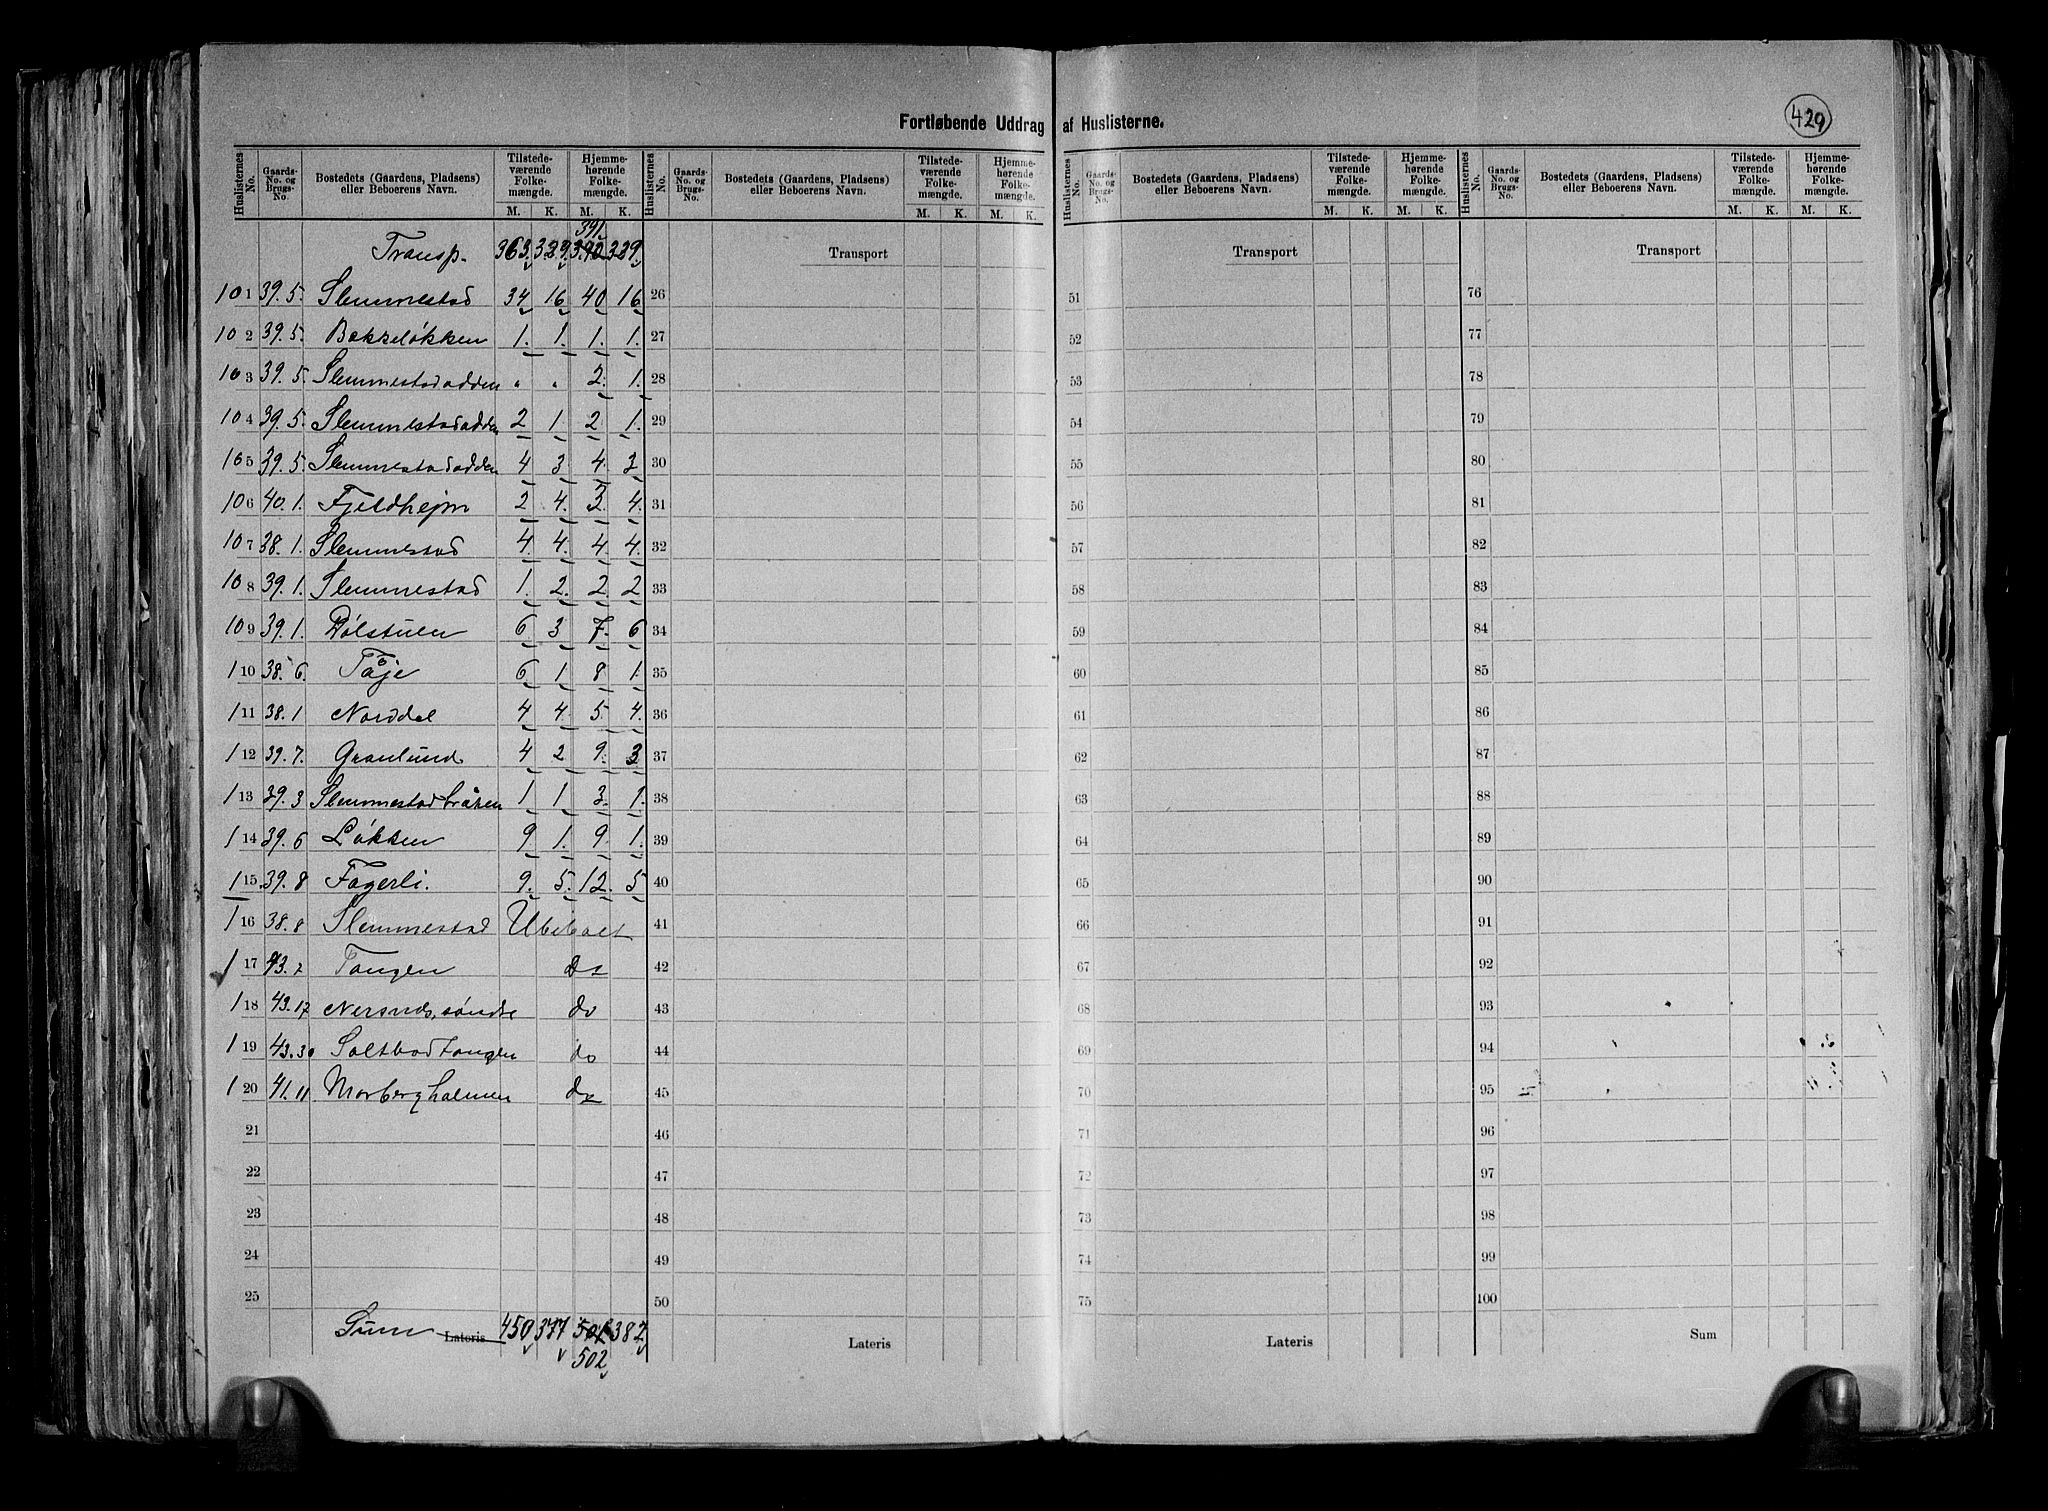 429
Fortløbende Uddrag af Huslisterne.
Huslisternes No. Gaards-No. og Brugs-No. Bostedets (Gaardens, Pladsens) eller Beboerens Navn. Tilstedeværende Folkemængde. M. K. Hjemmehørende Folkemængde. M. K.
Huslisternes No. Gaards-No. og Brugs-No. Bostedets (Gaardens, Pladsens) eller Beboerens Navn. Tilstedeværende Folkemængde. M. K. Hjemmehørende Folkemængde. M. K.
Huslisternes No. Gaards-No. og Brugs-No. Bostedets (Gaardens, Pladsens) eller Beboerens Navn. Tilstedeværende Folkemængde. M. K. Hjemmehørende Folkemængde. M. K.
Huslisternes No. Gaards-No. og Brugs-No. Bostedets (Gaardens, Pladsens) eller Beboerens Navn. Tilstedeværende Folkemængde. M. K. Hjemmehørende Folkemængde. M. K.
391
Transp. 363. 329. 390 329. Transport Transport Transport
101 39.5. Slemmestad 34 16 40 16 26 51 76
102 39.5. Bakkeløkken 1. 1. 1. 1. 27 52 77
103 39.5. Slemmestadodden " " 2. 1. 28 53 78
104 39.5. Slemmestadodden 2 1. 2 1. 29 54 79
105 39.5. Slemmestadodden 4 3 4. 3 30 55 80
106 40.1. Fjeldhejm 2 4. 3. 4. 31 56 81
107 38.1. Slemmestad 4. 4. 4. 4. 32 57 82
108 39.1. Slemmestad 1. 2. 2 2 33 58 83
109 39.1. Dølstuen 6 3 7. 6 34 59 84
110 38.6. Tåje 6. 1 8 1. 35 60 85
111 38.1 Norddal 4 4. 5. 4. 36 61 86
112 39.7. Granlund 4 2 9. 3 37 62 87
113 39.3 Slemmestadbråten 1 1. 3. 1. 38 63 88
114 39.6 Løkken 9 1. 9. 1. 39 64 89
115 39.8 Fagerli. 9. 5. 12. 5 40 65 90
116 38.8 Slemmestad Ubeboet 41 66 91
117 43.2 Tangen do 42 67 92
118 43.17 Nersnes, søndre do 43 68 93
119 43.30 Saltbodtangen do 44 69 94
120 41.11 Morbergholmen do 45 70 95
21 46 71 96
22 47 72 97
23 48 73 98
24 49 74 99
25 50 75 100
Sum Lateris 450 377 501 382 Lateris Lateris Sum
502